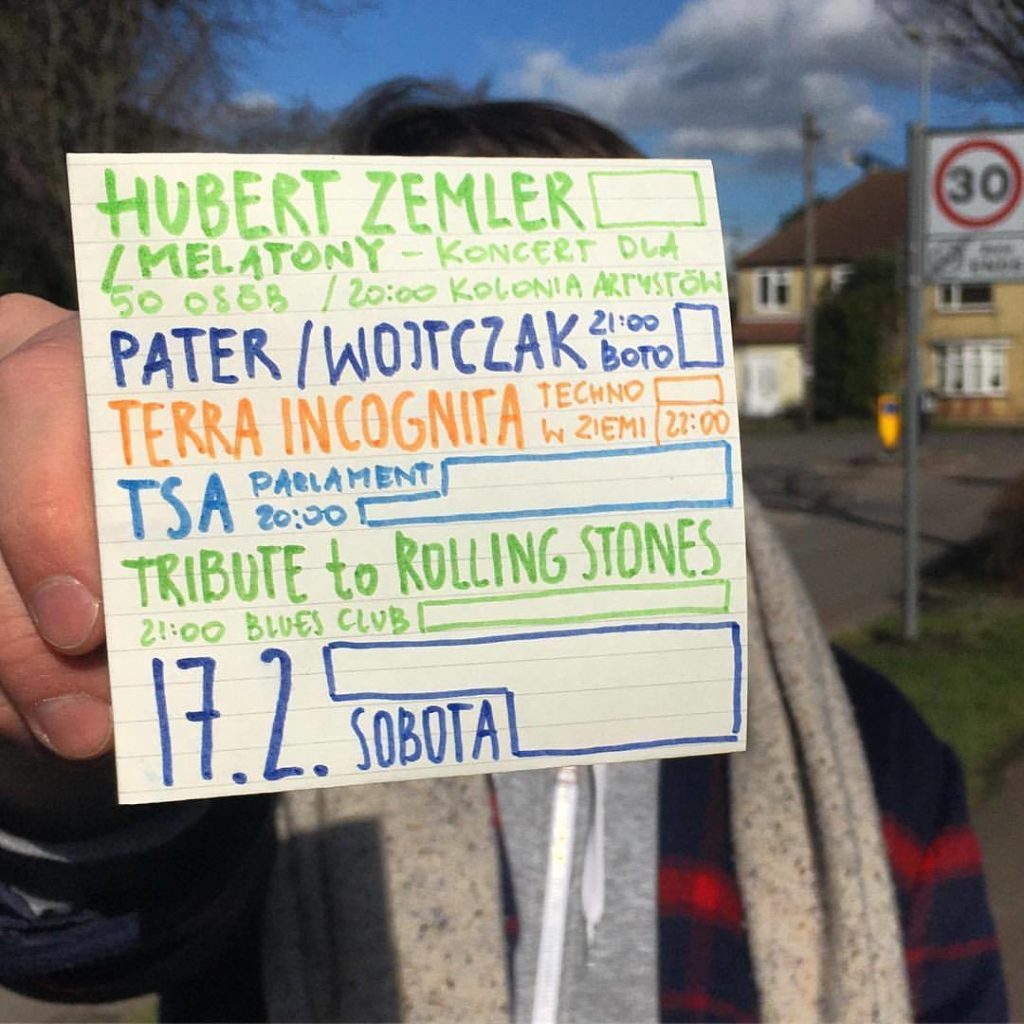 HUBERT ZEMLER
/MELATONY - KONCERT DLA
50 OSÓB / 20:00 KOLONIA ARTYSTÓW
PATER / WOJTCZAK 21:00
BOTO
TERRA INCOGNITA TECHNO
W ZIEMI 22:00
TSA PARLAMENT
20:00
TRIBUTE to ROLLING STONES
21:00 BLUES CLUB
17.2. SOBOTA
30